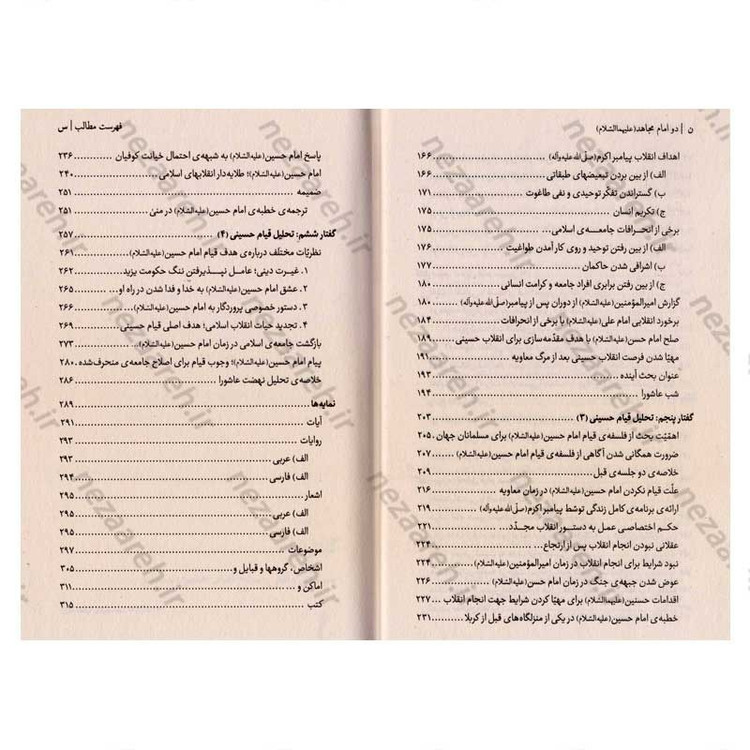 ن | دو امام مجاهد(علیهماالسّلام)
اهداف انقلاب پیامبر اکرم(صلّی الله علیه وآله) ۱۶۶
الف) از بین بردن تبعیضهای طبقاتی ۱۶۶
ب) گستراندن تفکّر توحیدی و نفی طاغوت ۱۷۱
ج) تکریم انسان ۱۷۵
برخی از انحرافات جامعه‌ی اسلامی ۱۷۵
الف) از بین رفتن توحید و روی کار آمدن طواغیت ۱۷۶
ب) اشرافی شدن حاکمان ۱۷۷
ج) از بین رفتن برابری افراد جامعه و کرامت انسانی ۱۸۰
گزارش امیرالمؤمنین(علیه السّلام) از دوران پس از پیامبر(صلّی الله علیه وآله) ۱۸۰
برخورد انقلابی امام علی(علیه السّلام) با برخی از انحرافات ۱۸۴
صلح امام حسن(علیه السّلام) با هدف مقدّمه‌سازی برای انقلاب حسینی ۱۸۹
مهیّا شدن فرصت انقلاب حسینی بعد از مرگ معاویه ۱۹۱
عنوان بحث آینده ۱۹۳
شب عاشورا ۱۹۴
گفتار پنجم: تحلیل قیام حسینی (۳) ۲۰۳
اهمّیّت بحث از فلسفه‌ی قیام امام حسین(علیه السّلام) برای مسلمانان جهان ۲۰۵
ضرورت همگانی شدن آگاهی از فلسفه‌ی قیام امام حسین(علیه السّلام) ۲۰۷
خلاصه‌ی دو جلسه‌ی قبل ۲۰۹
علّت قیام نکردن امام حسین(علیه السّلام) در زمان معاویه ۲۱۶
ارائه‌ی برنامه‌ی کامل زندگی توسّط پیامبر اکرم(صلّی الله علیه وآله) ۲۱۹
حکم اختصاصی عمل به دستور انقلاب مجدّد ۲۲۱
عقلانی نبودن انجام انقلاب پس از ارتجاع ۲۲۴
نبود شرایط برای انجام انقلاب در زمان امیرالمؤمنین(علیه السّلام) ۲۲۴
عوض شدن جبهه‌ی جنگ در زمان امام حسن(علیه السّلام) ۲۲۶
اقدامات حسنین(علیهماالسّلام) برای مهیّا کردن شرایط جهت انجام انقلاب ۲۲۷
خطبه‌ی امام حسین(علیه السّلام) در یکی از منزلگاه‌های قبل از کربلا ۲۳۱
فهرست مطالب | س
پاسخ امام حسین(علیه السّلام) به شبهه‌ی احتمال خیانت کوفیان ۲۳۶
امام حسین(علیه السّلام)؛ طلایه‌دار انقلابهای اسلامی ۲۴۰
ضمیمه ۲۵۱
ترجمه‌ی خطبه‌ی امام حسین(علیه السّلام) در منیٰ ۲۵۱
گفتار ششم: تحلیل قیام حسینی (۴) ۲۵۷
نظریّات مختلف درباره‌ی هدف قیام امام حسین(علیه السّلام) ۲۶۱
۱. غیرت دینی؛ عامل نپذیرفتن ننگ حکومت یزید ۲۶۲
۲. عشق امام حسین(علیه السّلام) به خدا و فدا شدن در راه او ۲۶۵
۳. دستور خصوصی پروردگار به امام حسین(علیه السّلام) ۲۶۶
۴. تجدید حیات انقلاب اسلامی؛ هدف اصلی قیام حسینی ۲۶۹
بازگشت جامعه‌ی اسلامی در زمان امام حسین(علیه السّلام) ۲۷۳
پیام امام حسین(علیه السّلام)؛ وجوب قیام برای اصلاح جامعه‌ی منحرف‌شده ۲۸۰
خلاصه‌ی تحلیل نهضت عاشورا ۲۸۶
نمایه‌ها ۲۸۹
آیات ۲۹۱
روایات ۲۹۳
الف) عربی ۲۹۳
الف) فارسی ۲۹۴
اشعار ۲۹۵
الف) عربی ۲۹۵
الف) فارسی ۲۹۵
موضوعات ۲۹۷
اشخاص، گروهها و قبایل و ۳۰۵
اماکن و ۳۱۱
کتب ۳۱۵
nezaareh.ir